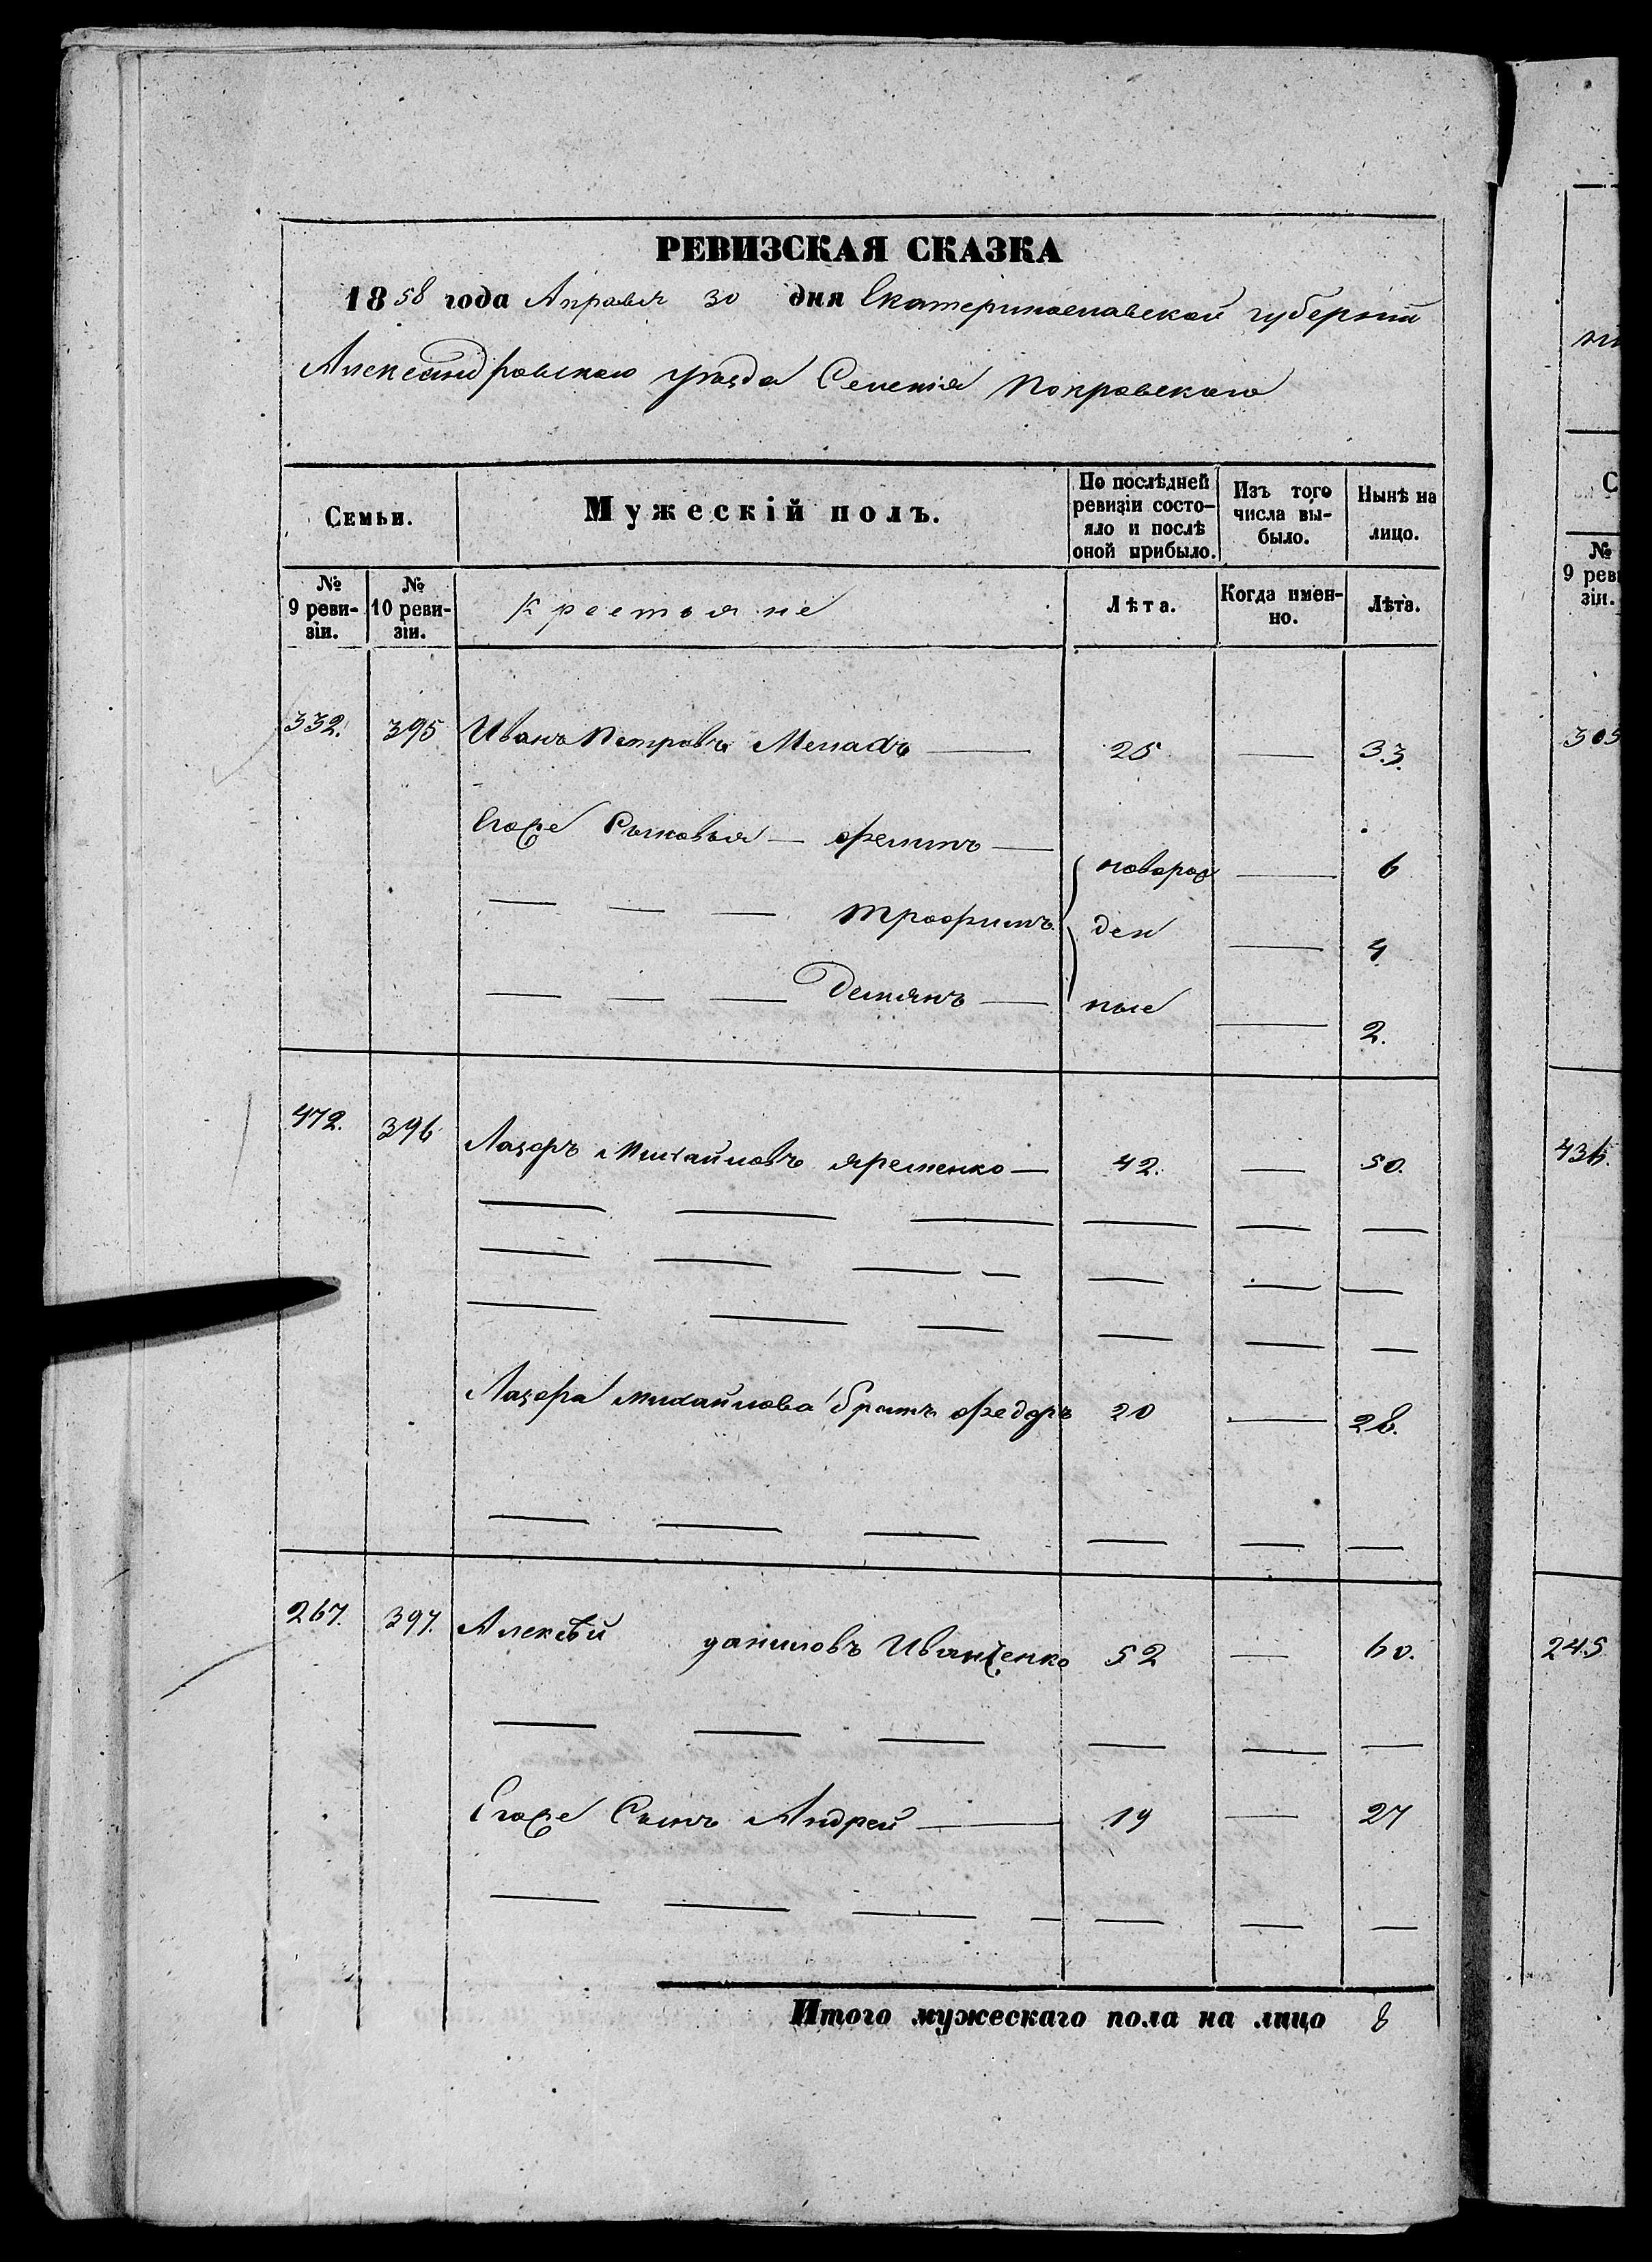 РЕВИЗСКАЯ СКАЗКА
1858 года Апреля 30 дня Екатеринославской губернии
Александровского уезда Селенія Покровского
Семьи.
Мужескій полъ.
По послѣдней ревизіи состо-
яло и послѣ оной прибыло.
Изъ того числа вы-
было.
Нынѣ на лицо.
№ 9 реви-
зіи.
№ 10 реви-
зіи.
Крестьяне
Лѣта.
Когда имен-
но.
Лѣта.
332. 395 Иванъ Петровъ 25 — 33.
Его же Сыновья — — новорож — 6
— — — Трофимъ ден — 4
— — — Демянъ — ные — 2.
472. 396 Лазарь Михайловъ Яременко — 42. — 50.
Лазаря Михайлова братъ Федоръ 20 — 28.
267. 397. Алексѣй Даниловъ Иванченко 52 — 60.
Его же Сынъ Андрей — 19 — 27
Итого мужескаго пола на лицо 8
№
9 реви
зіи.
305
436.
245